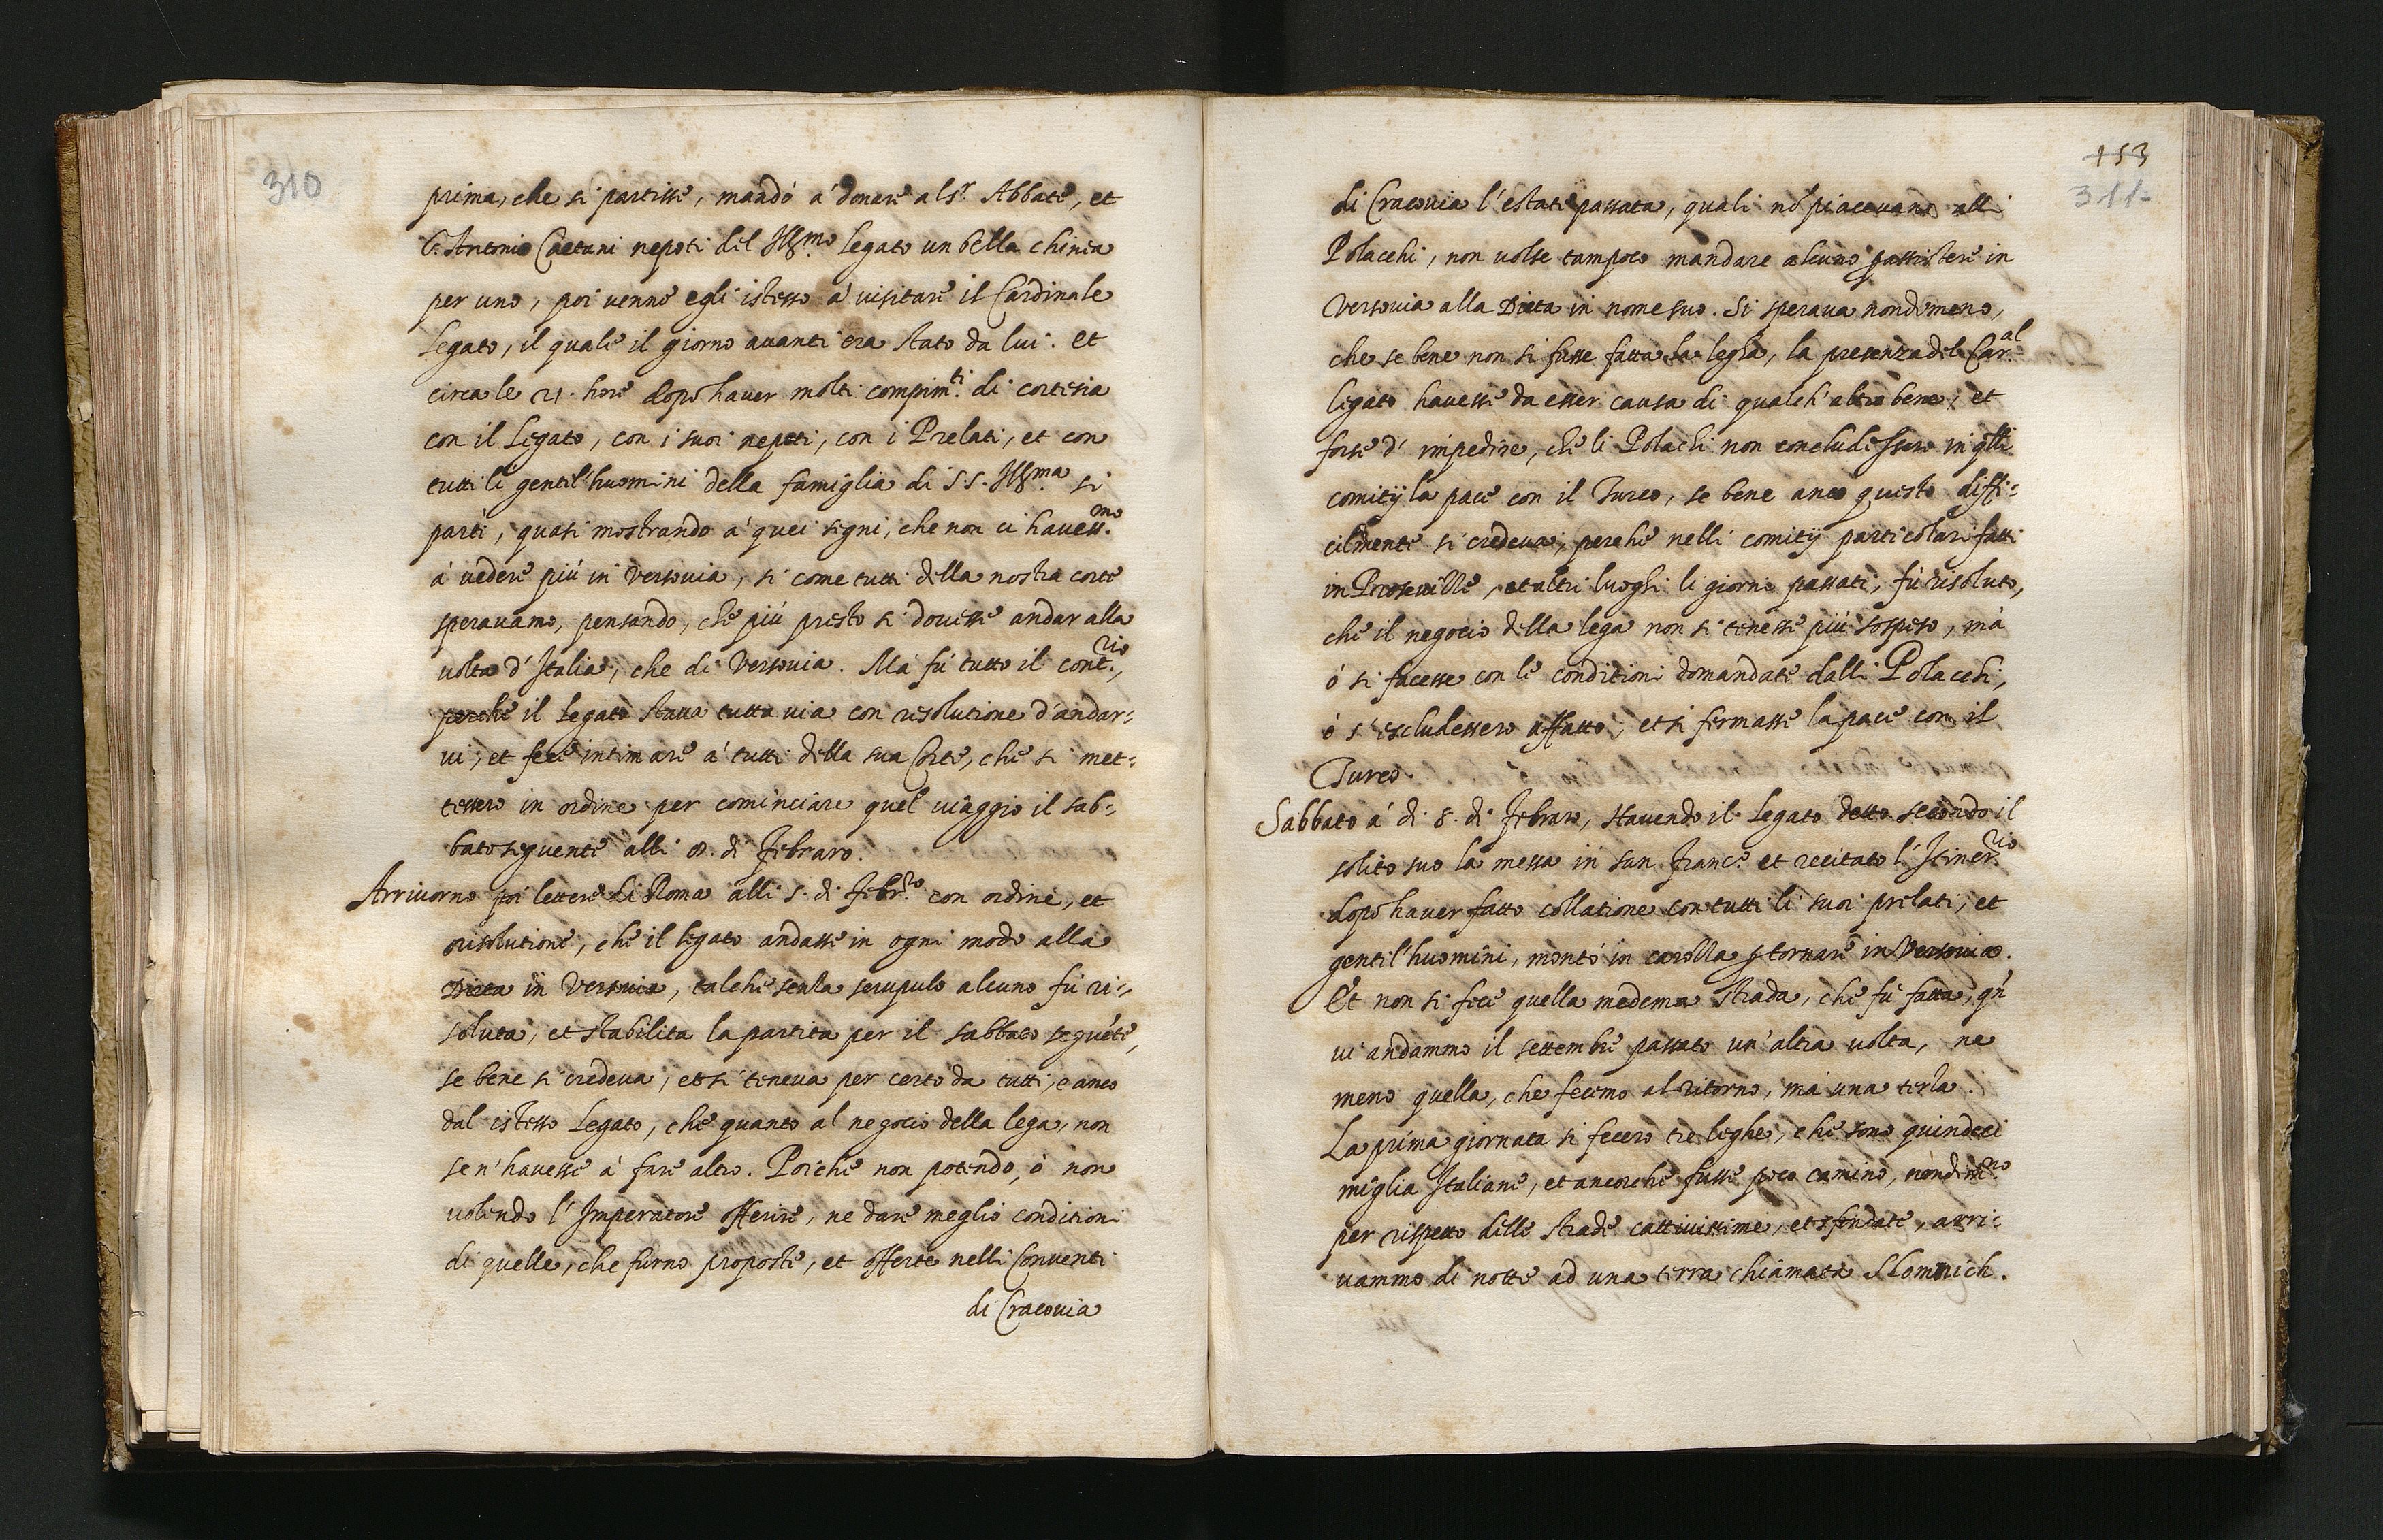 310
prima, che si partisse, mandò à donare al Sr. Abbate, et
S. Antonio Caetani nepoti del Illmo. Legato un bella chinea
per uno, poi venne egli istesso à visitare il Cardinale
Legato, il quale il giorno avanti era stato da lui. et
circa le 21. hore dopò haver molti compimti. di cortesia
con il Legato, con i suoi nepoti, con i Prelati, et con
tutti li gentil'huomini della famiglia di S.S. Illma. si
parti, quasi mostrando à quei segni, che non ci havessmo.
à vedere più in Versovia, si come tutti della nostra corte
speravamo, pensando, che più presto si dovesse andar alla
volta d'Italia, che di Versovia. Mà fù tutto il contrio.,
perche il Legato stava tutta via con resolutione d'andar=
vi, et fece intimare à tutti della sua Corte, che si met=
tessero in ordine per cominciare quel viaggio il sab=
bato seguente alli 8. di Febraro.
Arrivorno poi lettere di Roma alli 5. di Febrro. con ordine, et
risolutione, che il legato andasse in ogni modo alla
Dieta in Versovia, talche senza scrupulo alcuno fù ri=
soluta, et stabilita la partita per il sabbato seguēte,
se bene si credeva, et si teneva per certo da tutti, e anco
dal istesso Legato, che quanto al negocio della lega, non
se n'havesse à fare altro. Poiche non potendo, ò non
volendo l'Imperatore offerire, ne dare meglio conditioni
di quelle, che furno proposte, et offerte nelli Conventi
di Cracovia
153
311
di Cracovia l'estate passata, quali nō piacevano alli
Polacchi, non volse tampoco mandare alcuno passistere in
Versovia alla Dieta in nome suo. Si sperava nondimeno,
che se bene non si fusse fatta la legha, la presenza del Caral.
legato havesse da esser causa di qualch'altro bene, et
forse d'impedire, che li Polachi non concludessero in qlli
comitij la pace con il Turco, se bene anco questo diffi=
cilmente si credeva, perche nelli comitij particolari fatti
in Proseville, et altri luoghi li giorni passati, fù risoluto,
che il negocio della lega non si tenesse più sospeso, mà
ò si facesse con le conditioni domandate dalli Polacchi,
ò s'escludessero affatto, et si fermasse la pace con il
Turco.
Sabbato à di 8. di Febraro, Havendo il Legato detto secondo il
solito suo la messa in san Francо. et recitato l'Itinerrio.
dopò haver fatto collatione con tutti li suoi prelati, et
gentil'huomini, montò in carozza p tornare in Versovia.
Et non si fece quella medema strada, che fù fatta, qn
vi andammo il settembre passato un'altra volta, ne
meno quella, che fecimo al ritorno, mà una terza.
La prima giornata si fecero tre leghe, che sono quindeci
miglia Italiane, et ancorche fusse poco camino, nondimno.
per rispetto delle strade cattivissime, et sfondate, arri=
vammo di notte ad una terra chiamata Slomnich.